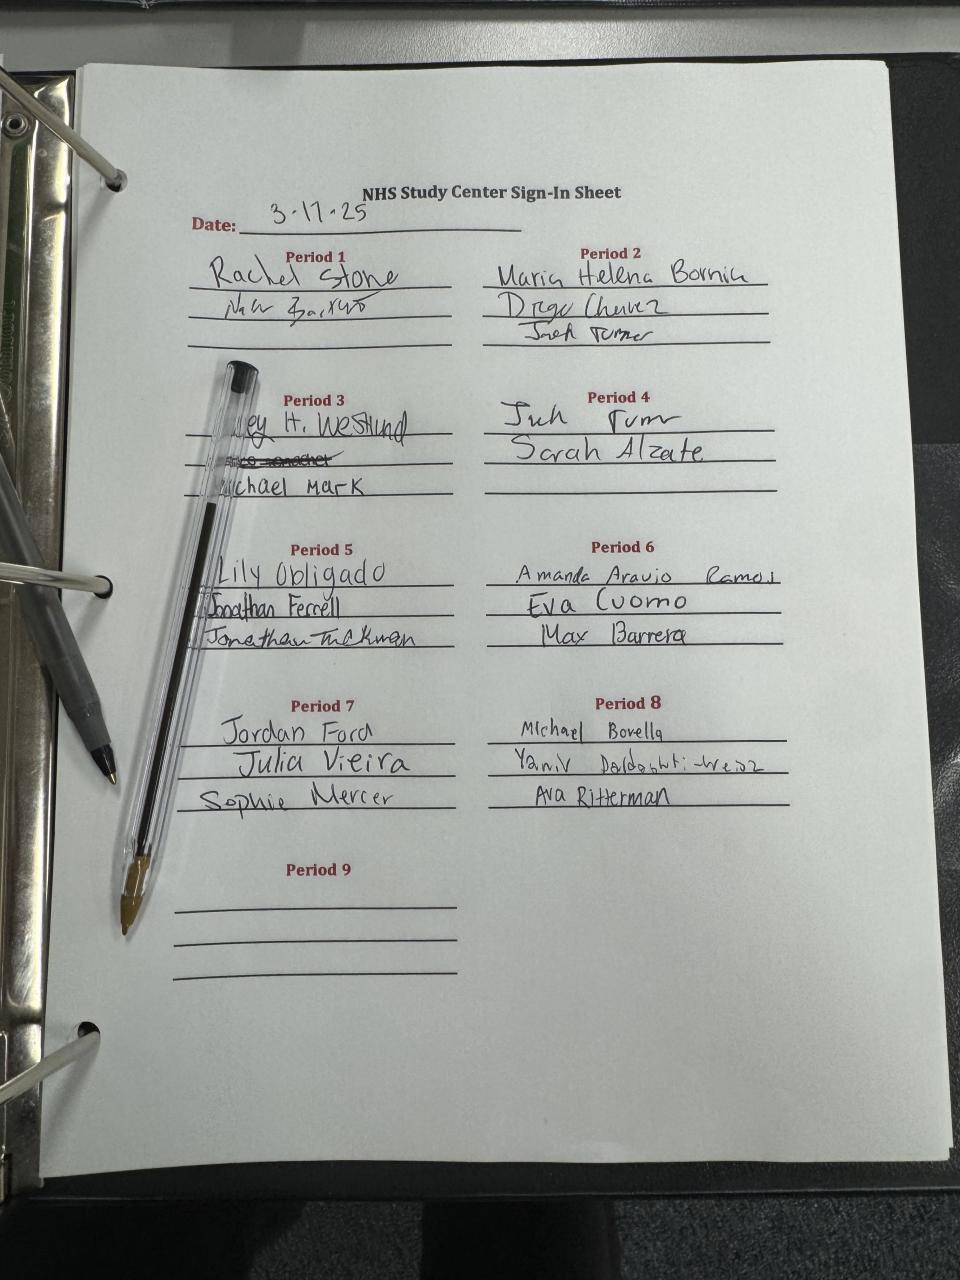 NHS Study Center Sign-In Sheet
Date: 3-17-25
Period 1
Rachel Stone
Period 2
Maria Helena Bornia
Diego Chavez
Jack Turner
Period 3
H. Westlund
Michael Mark
Period 4
Sarah Alzate
Period 5
Lily Obligado
Jonathan Ferrell
Jonathan Tuckman
Period 6
Amanda Araujo Ramos
Eva Cuomo
Max Barrera
Period 7
Jordan Ford
Julia Vieira
Sophie Mercer
Period 8
Michael Borella
Yaniv
Ava Ritterman
Period 9